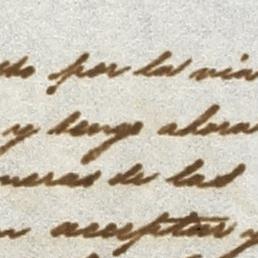 do por la via
y tengo ahora
neras de las
aceptar y